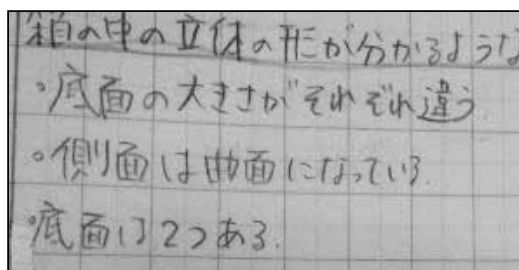 箱の中の立体の形が分かるような
・底面の大きさがそれぞれ違う
・側面は曲面になっている.
・底面は2つある.